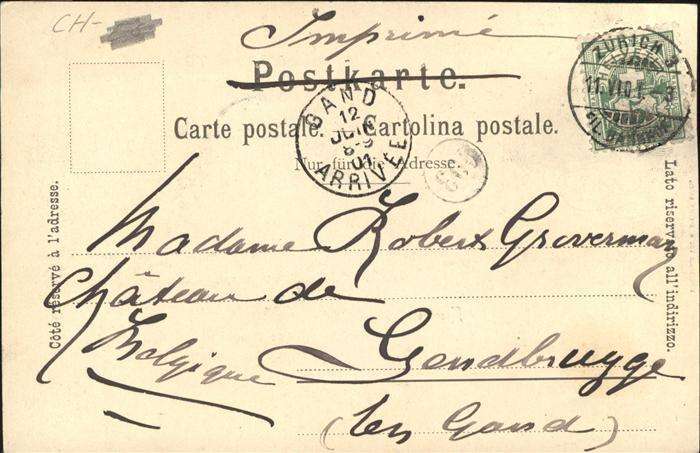 CH-
Imprimé
Postkarte.
Carte postale. Cartolina postale.
Nur für die Adresse.
Côté réservé à l'adresse.
Lato riservato all'indirizzo.
ZÜRICH
GAND
12
8-9
01
ARRIVÉE
Madame Robert Groverman
Château de
Belgique Gendbrugge
(lez Gand)